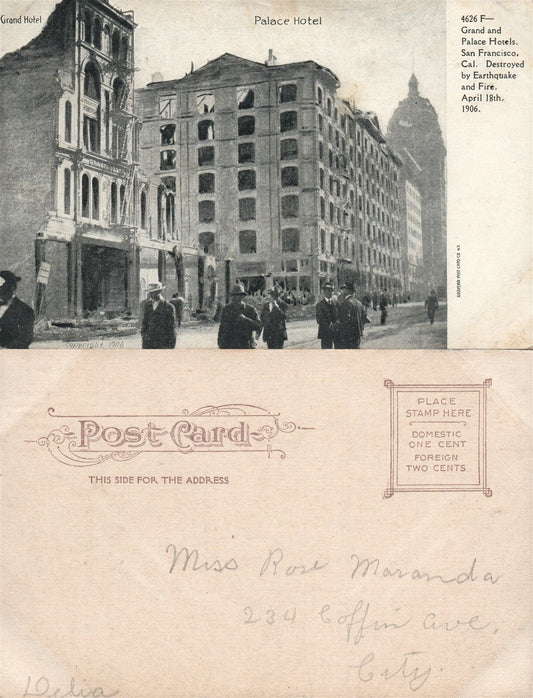 Grand Hotel
Palace Hotel
4626 F—
Grand and
Palace Hotels.
San Francisco,
Cal. Destroyed
by Earthquake
and Fire.
April 18th.
1906.
SOUVENIR POST CARD CO. N.Y.
Copyright 1906
PLACE
STAMP HERE
DOMESTIC
ONE CENT
FOREIGN
TWO CENTS
Post Card
THIS SIDE FOR THE ADDRESS
Miss Rose Maranda
234 Coffin Ave.
City.
Delia